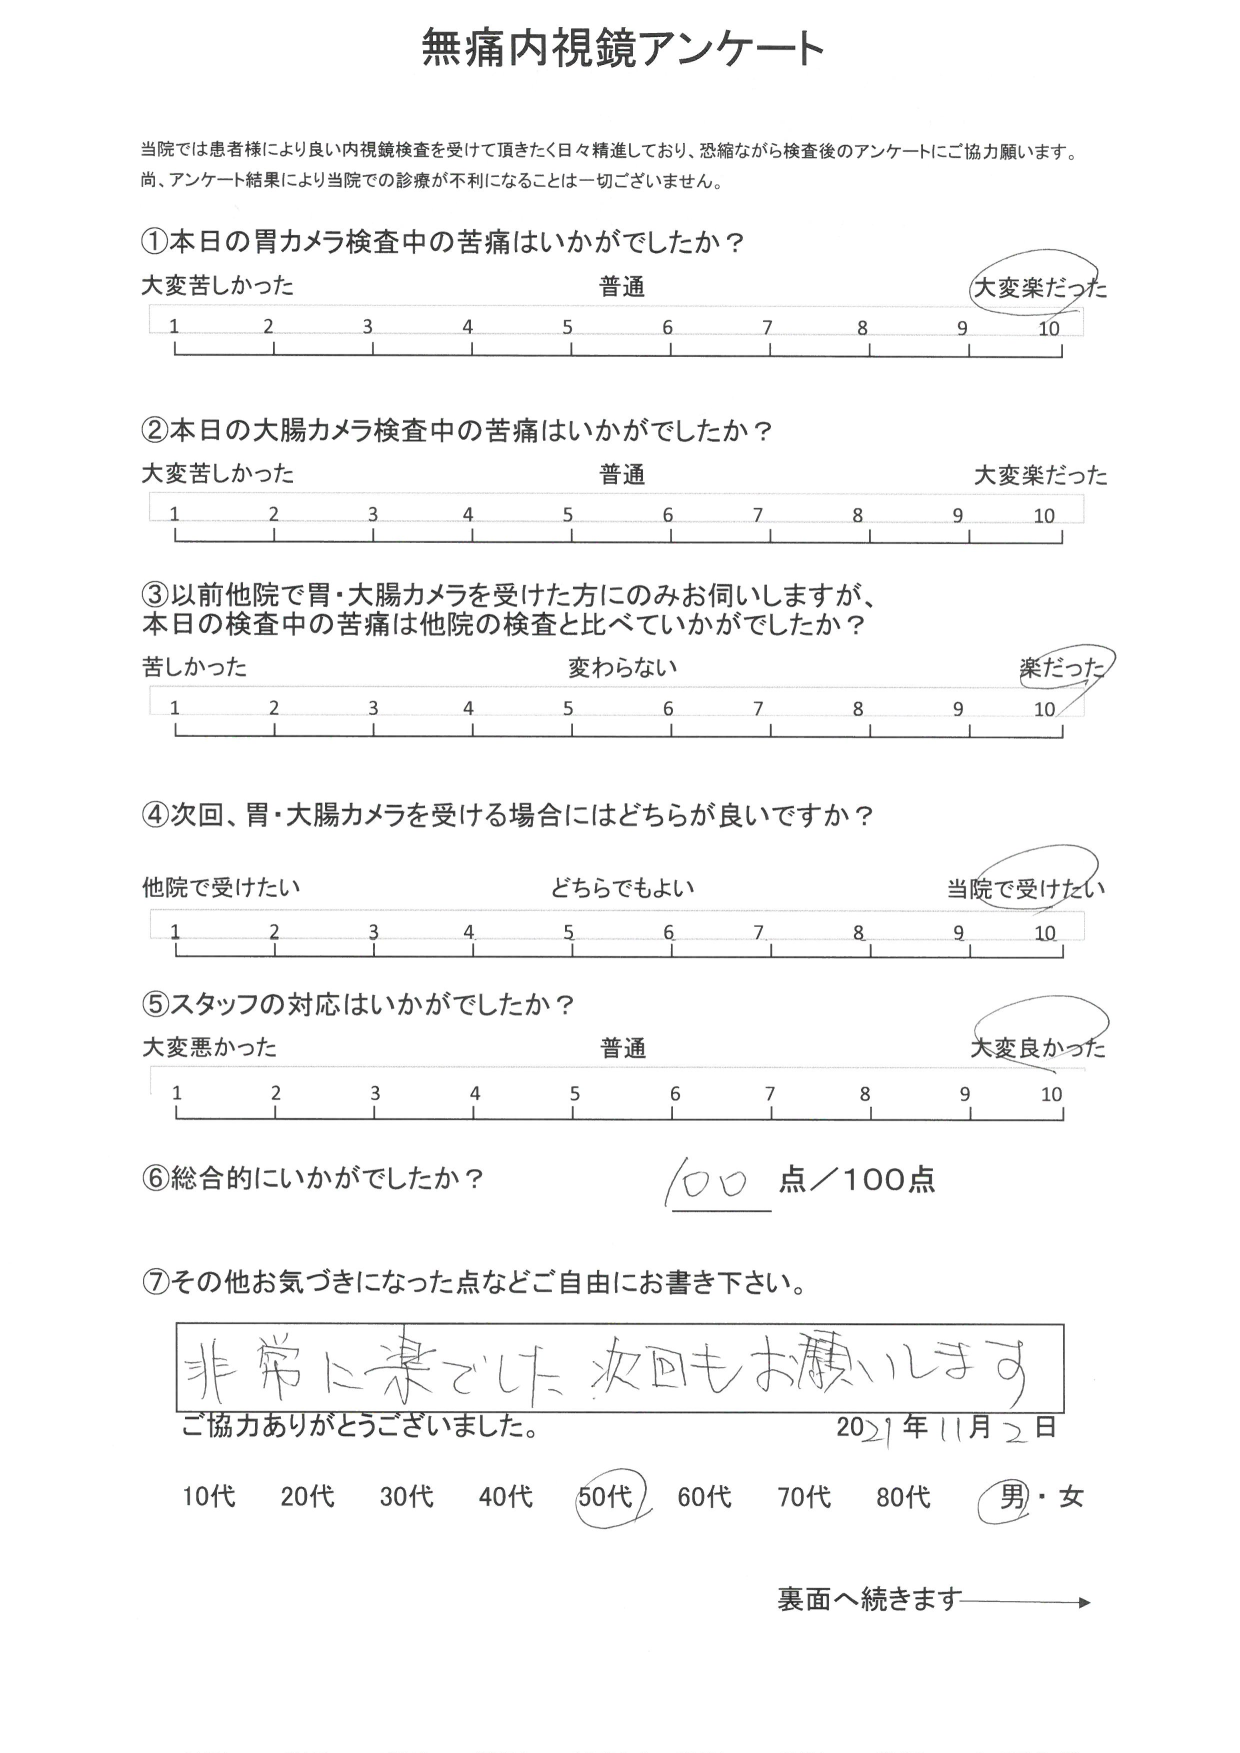 無痛内視鏡アンケート
当院では患者様により良い内視鏡検査を受けて頂きたく日々精進しており、恐縮ながら検査後のアンケートにご協力願います。
尚、アンケート結果により当院での診療が不利になることは一切ございません。
①本日の胃カメラ検査中の苦痛はいかがでしたか？
大変苦しかった 普通 大変楽だった
1 2 3 4 5 6 7 8 9 10
②本日の大腸カメラ検査中の苦痛はいかがでしたか？
大変苦しかった 普通 大変楽だった
1 2 3 4 5 6 7 8 9 10
③以前他院で胃・大腸カメラを受けた方にのみお伺いしますが、
本日の検査中の苦痛は他院の検査と比べていかがでしたか？
苦しかった 変わらない 楽だった
1 2 3 4 5 6 7 8 9 10
④次回、胃・大腸カメラを受ける場合にはどちらが良いですか？
他院で受けたい どちらでもよい 当院で受けたい
1 2 3 4 5 6 7 8 9 10
⑤スタッフの対応はいかがでしたか？
大変悪かった 普通 大変良かった
1 2 3 4 5 6 7 8 9 10
⑥総合的にいかがでしたか？ 100 点／100点
⑦その他お気づきになった点などご自由にお書き下さい。
非常に楽でした、次回もお願いします
ご協力ありがとうございました。 2021年11月2日
10代 20代 30代 40代 50代 60代 70代 80代 男・女
裏面へ続きます